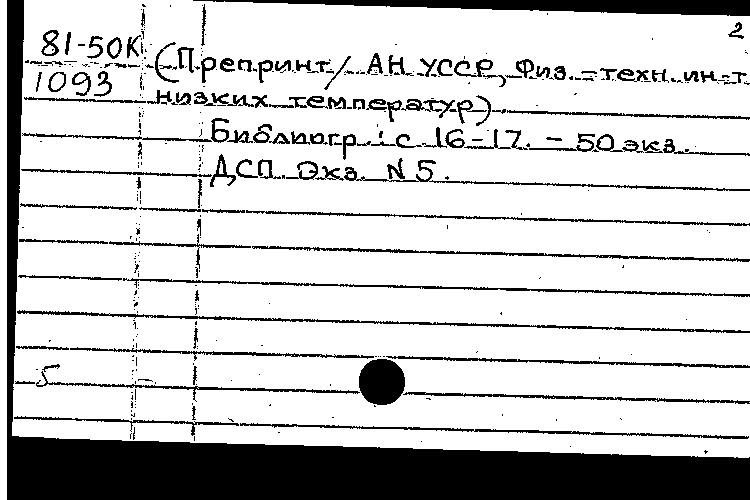 2
81-50К
1093
(Препринт/ АН УССР, Физ.-техн. ин-т
низких температур).
Библиогр.: с 16-17. - 50 экз.
ДСП. Экз. N 5.
5